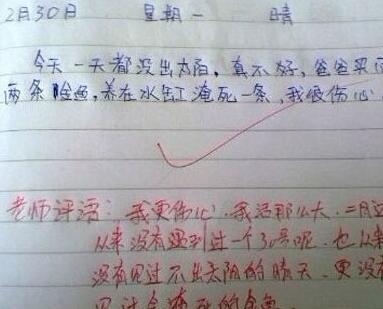 2月30日 星期一 晴
今天一天都没出太阳，真不好，爸爸买回
两条金鱼，养在水缸淹死一条，我很伤心
老师评语：我更伤心，我活那么大，二月
从来没有遇到过一个30号呢，也从来
没有见过不出太阳的晴天，更没有
见过会淹死的金鱼。